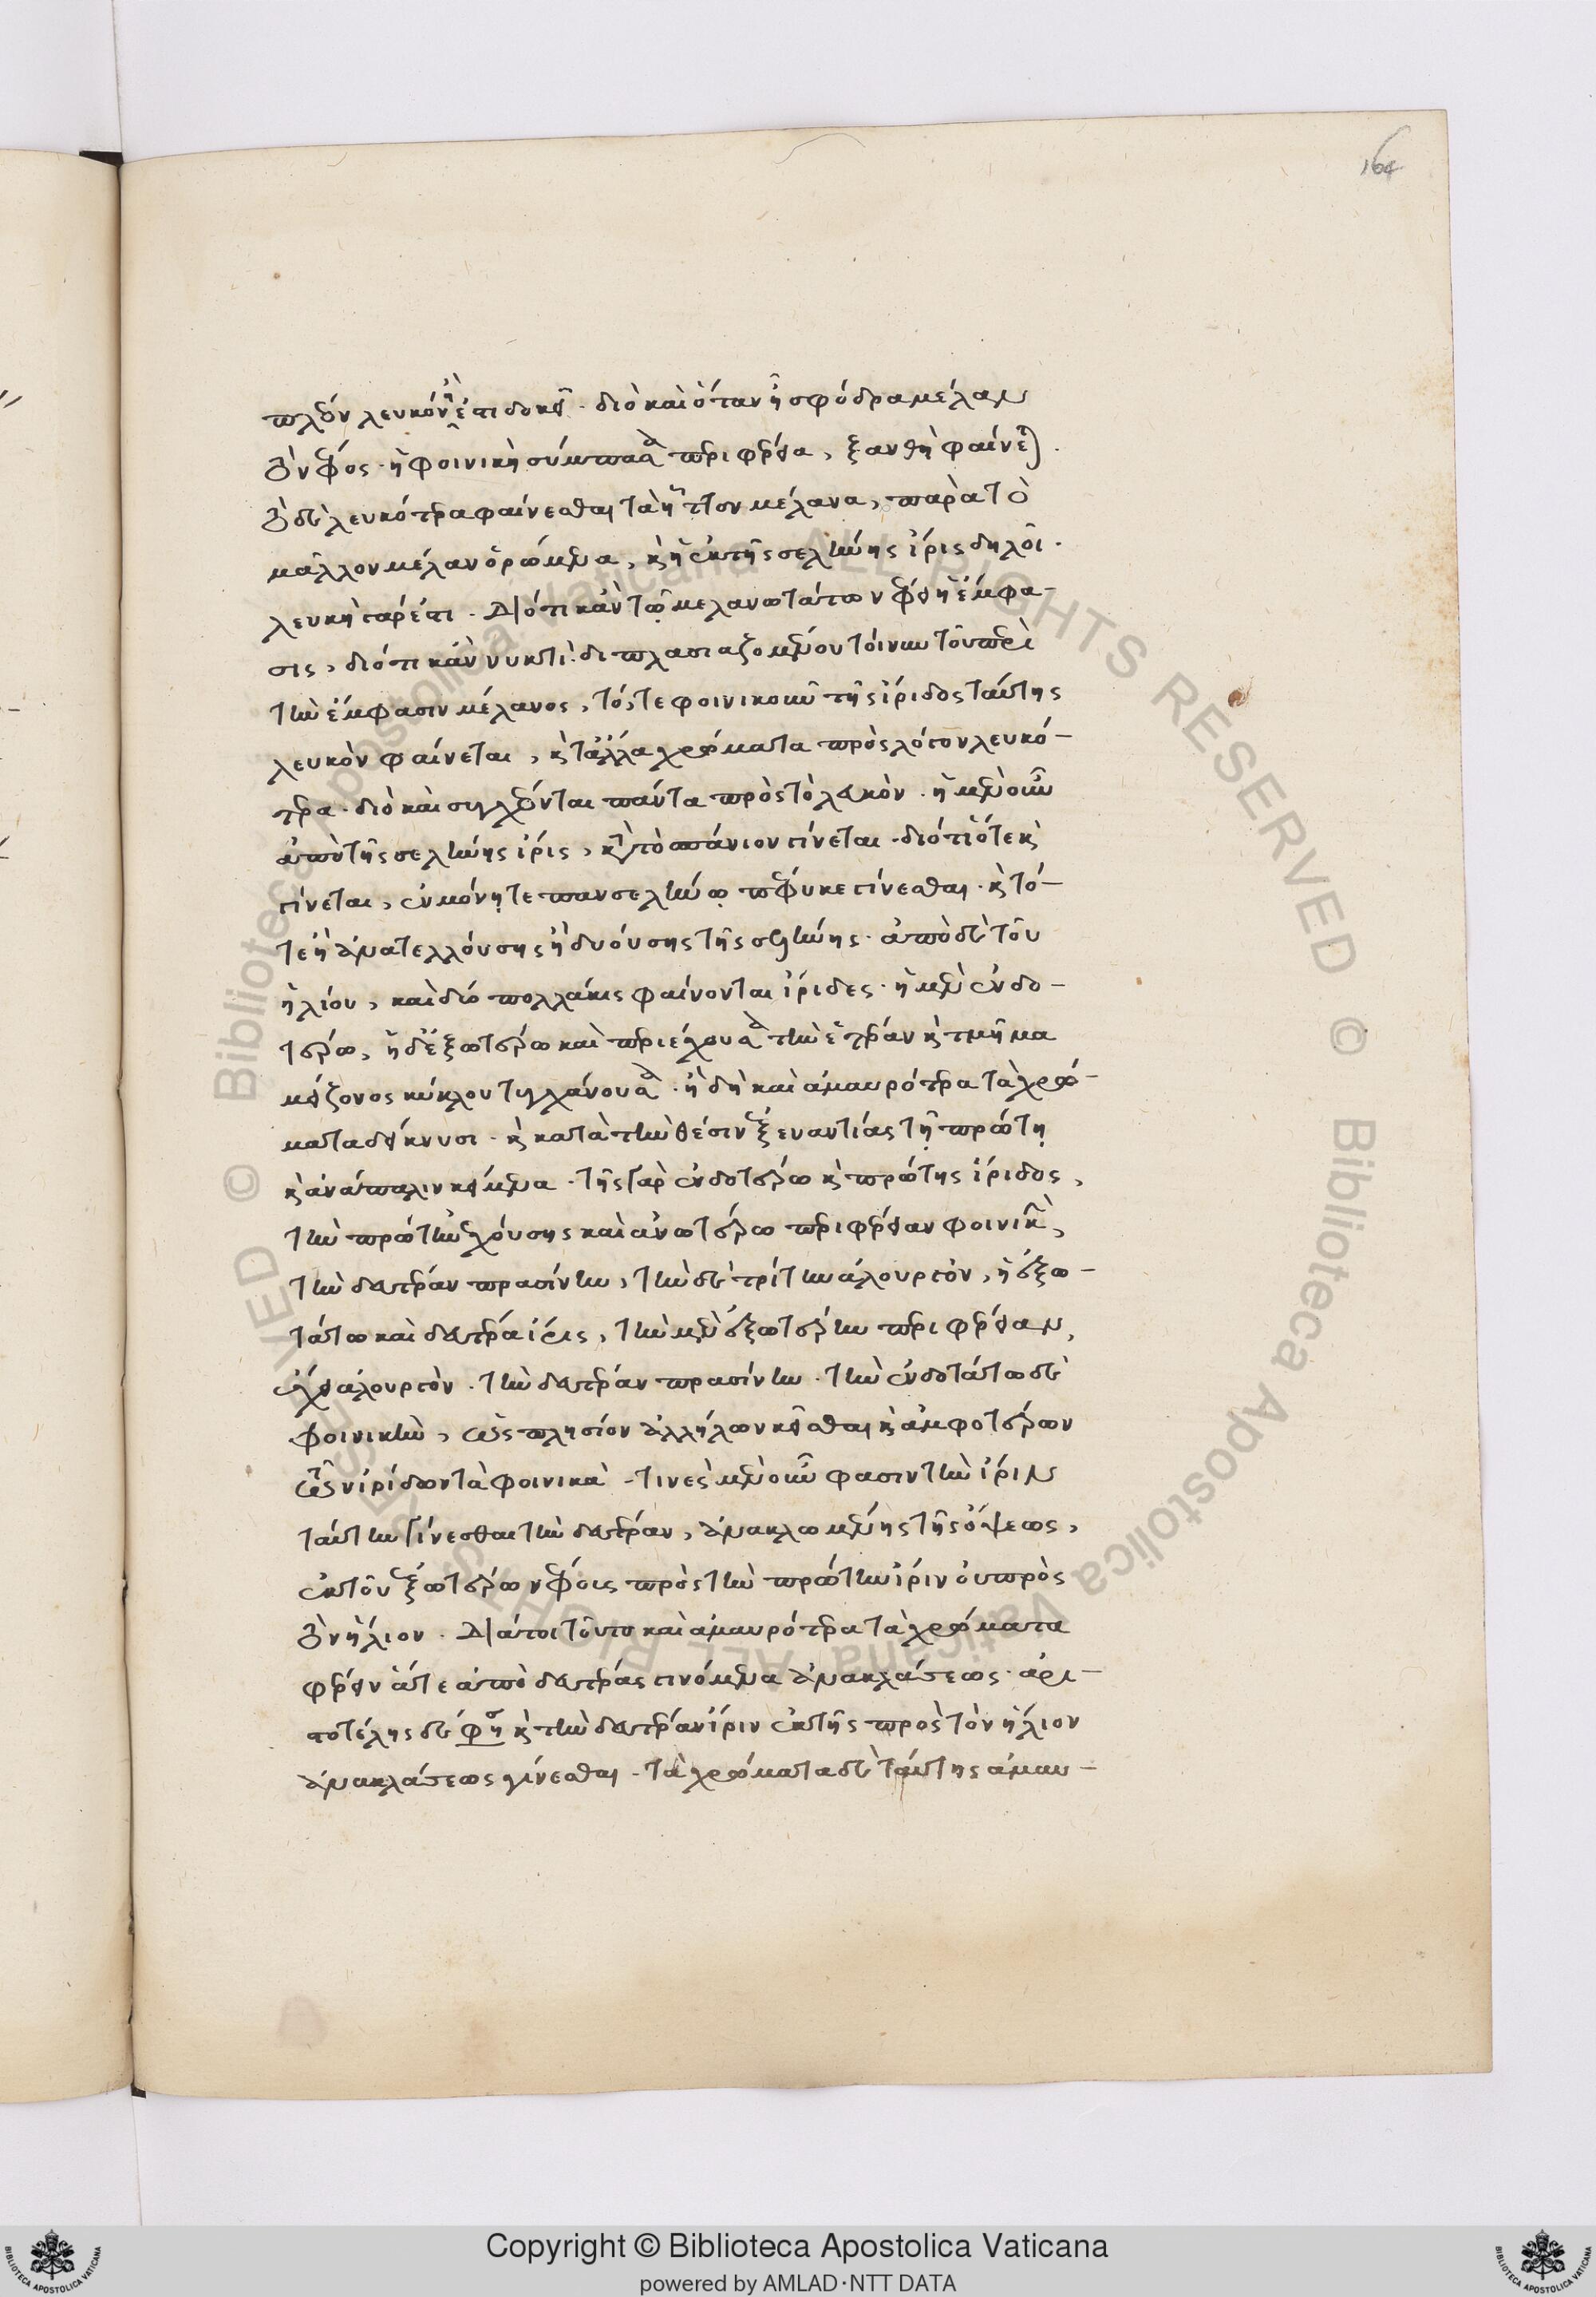 164
πλέον λευκὸν ἢ ἔστι δοκεῖ. διὸ καὶ ὅταν ᾖ σφόδρα μέλαν
τὸ νέφος. ἡ φοινικῆ σύμπασα περιφέρεια, ξανθὴ φαίνεται.
τὸ δὲ λευκότερα φαίνεσθαι τὰ ἧττον μέλανα, παρὰ τὸ
μᾶλλον μέλαν ὁρώμενα, καὶ ἡ ἐκ τῆς σελήνης ἶρις δηλοῖ.
λευκὴ γάρ ἐστι. διότι κἀν τῷ μελανωτάτῳ νέφει ἡ ἔμφα-
σις, διότι κἀν νυκτὶ. διπλασιαζομένου τοίνυν τοῦ περὶ
τὴν ἔμφασιν μέλανος, τό, τε φοινικοῦν τῆς ἴριδος ταύτης
λευκὸν φαίνεται, καὶ τἄλλα χρώματα πρὸς λόγον λευκό-
τερα. διὸ καὶ συγχέονται πάντα πρὸς τὸ λευκόν. ἡ μὲν οὖν
ἀπὸ τῆς σελήνης ἶρις, κατὰ τὸ σπάνιον γίνεται. διότι ὅτε καὶ
γίνεται, ἐν μόνῃ τε πανσελήνῳ πέφυκε γίνεσθαι. καὶ τό-
τε ἢ ἀνατελλούσης ἢ δυούσης τῆς σελήνης. ἀπὸ δὲ τοῦ
ἡλίου, καὶ δύο πολλάκις φαίνονται ἴριδες. ἡ μὲν ἐνδο-
τέρω, ἡ δ' ἐξωτέρω καὶ περιέχουσα τὴν ἑτέραν καὶ τμῆμα
μείζονος κύκλου τυγχάνουσα. ἤδη καὶ ἀμαυρότερα τὰ χρώ-
ματα δείκνυσι. καὶ κατὰ τὴν θέσιν ἐξεναντίας τῇ πρώτῃ
καὶ ἀνάπαλιν κείμενα. τῆς γὰρ ἐνδοτέρω καὶ πρώτης ἴριδος,
τὴν πρώτην ἐχούσης καὶ ἀνωτέρω περιφέρειαν φοινικῆν,
τὴν δευτέραν πρασίνην, τὴν δὲ τρίτην ἁλουργόν, ἡ ἐξω-
τάτω καὶ δευτέρα ἶρις, τὴν μὲν ἐξωτέρην περιφέρειαν,
ἔχει ἁλουργόν. τὴν δευτέραν πρασίνην. τὴν ἐνδοτάτω δὲ
φοινικῆν, ὡς πλησίον ἀλλήλων κεῖσθαι καὶ ἀμφοτέρων
τῶν ἰρίδων τὰ φοινικᾶ. τινὲς μὲν οὖν φασιν τὴν ἶριν
ταύτην γίνεσθαι τὴν δευτέραν, ἀνακλωμένης τῆς ὄψεως,
ἐκ τοῦ ἐξωτέρω νέφους πρὸς τὴν πρώτην ἶριν οὐ πρὸς
τὸν ἥλιον. διάτοι τοῦτο καὶ ἀμαυρότερα τὰ χρώματα
φέρειν ἅτε ἀπὸ δευτέρας γινόμενα ἀνακλάσεως. ἀρι-
στοτέλης δέ φησι καὶ τὴν δευτέραν ἶριν ἐκ τῆς πρὸς τὸν ἥλιον
ἀνακλάσεως γίνεσθαι. τὰ χρώματα δὲ ταύτης ἀμαυ-
Copyright © Biblioteca Apostolica Vaticana
powered by AMLAD·NTT DATA